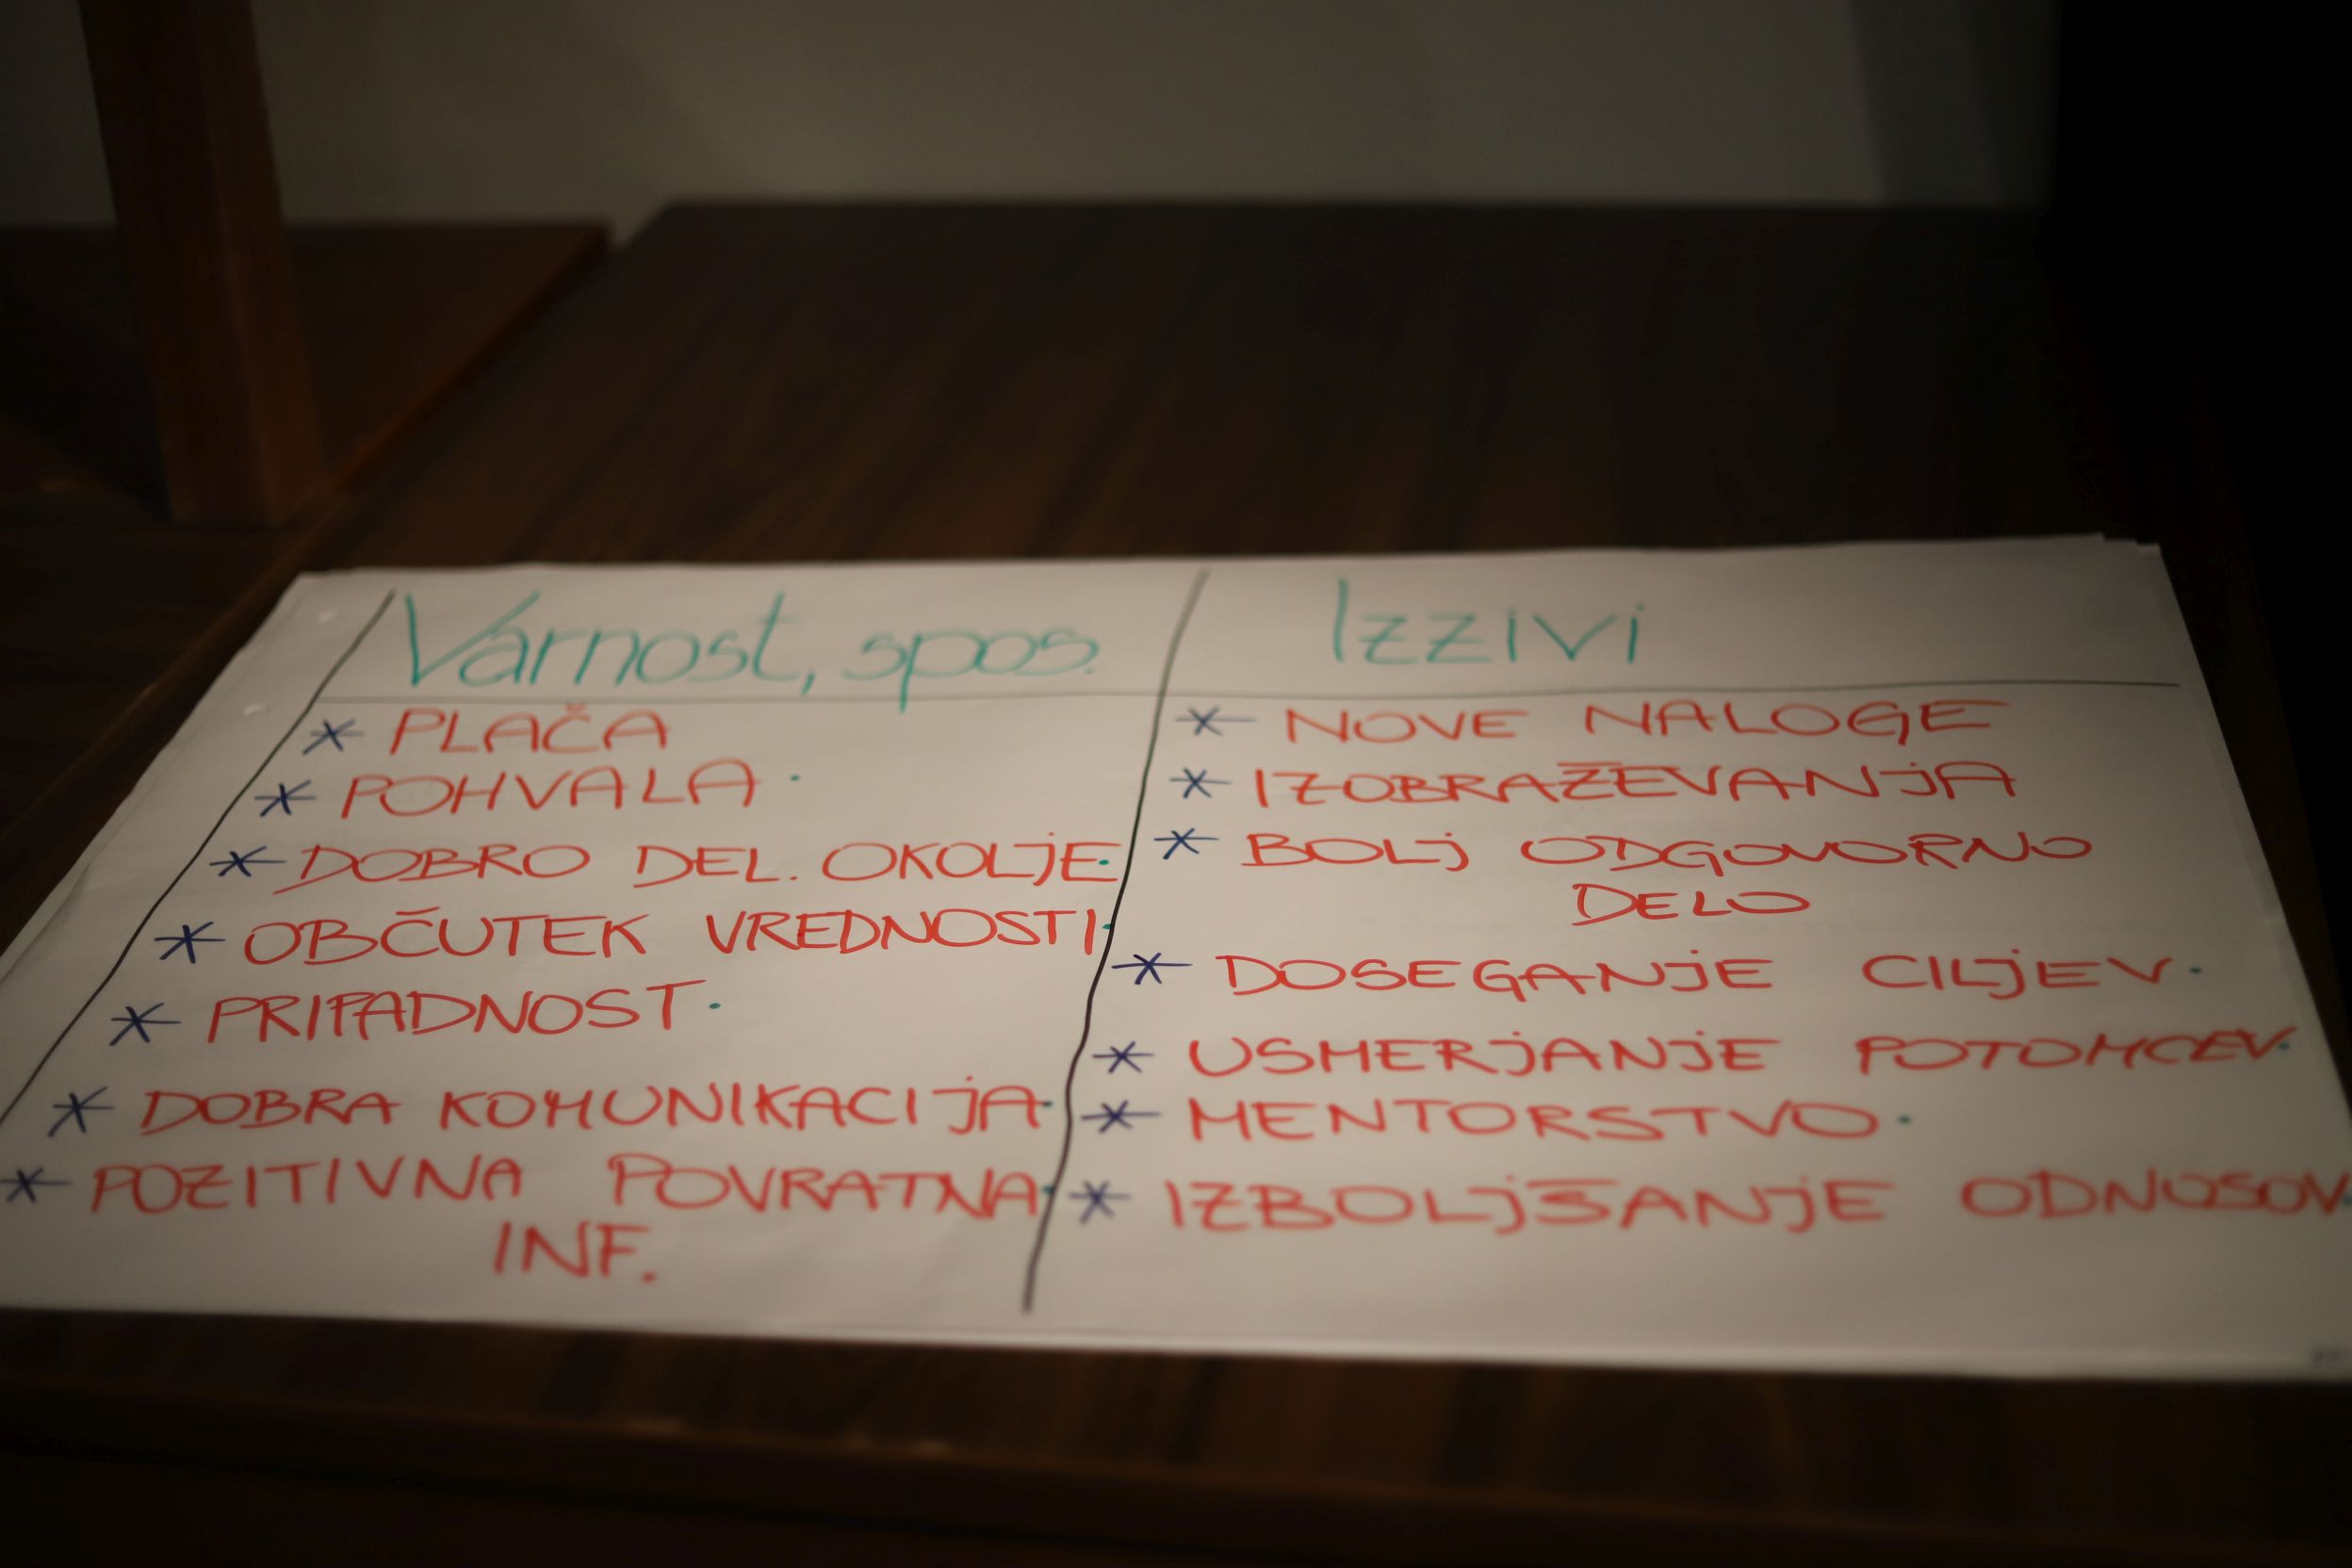 Varnost, spos.
* PLAČA
* POHVALA.
* DOBRO DEL. OKOLJE.
* OBČUTEK VREDNOSTI.
* PRIPADNOST.
* DOBRA KOMUNIKACIJA.
* POZITIVNA POVRATNA.
INF.
Izzivi
* NOVE NALOGE
* IZOBRAŽEVANJA
* BOLJ ODGOVORNO
DELO
* DOSEGANJE CILJEV.
* USMERJANJE POTOMCEV.
* MENTORSTVO.
* IZBOLJŠANJE ODNOSOV.